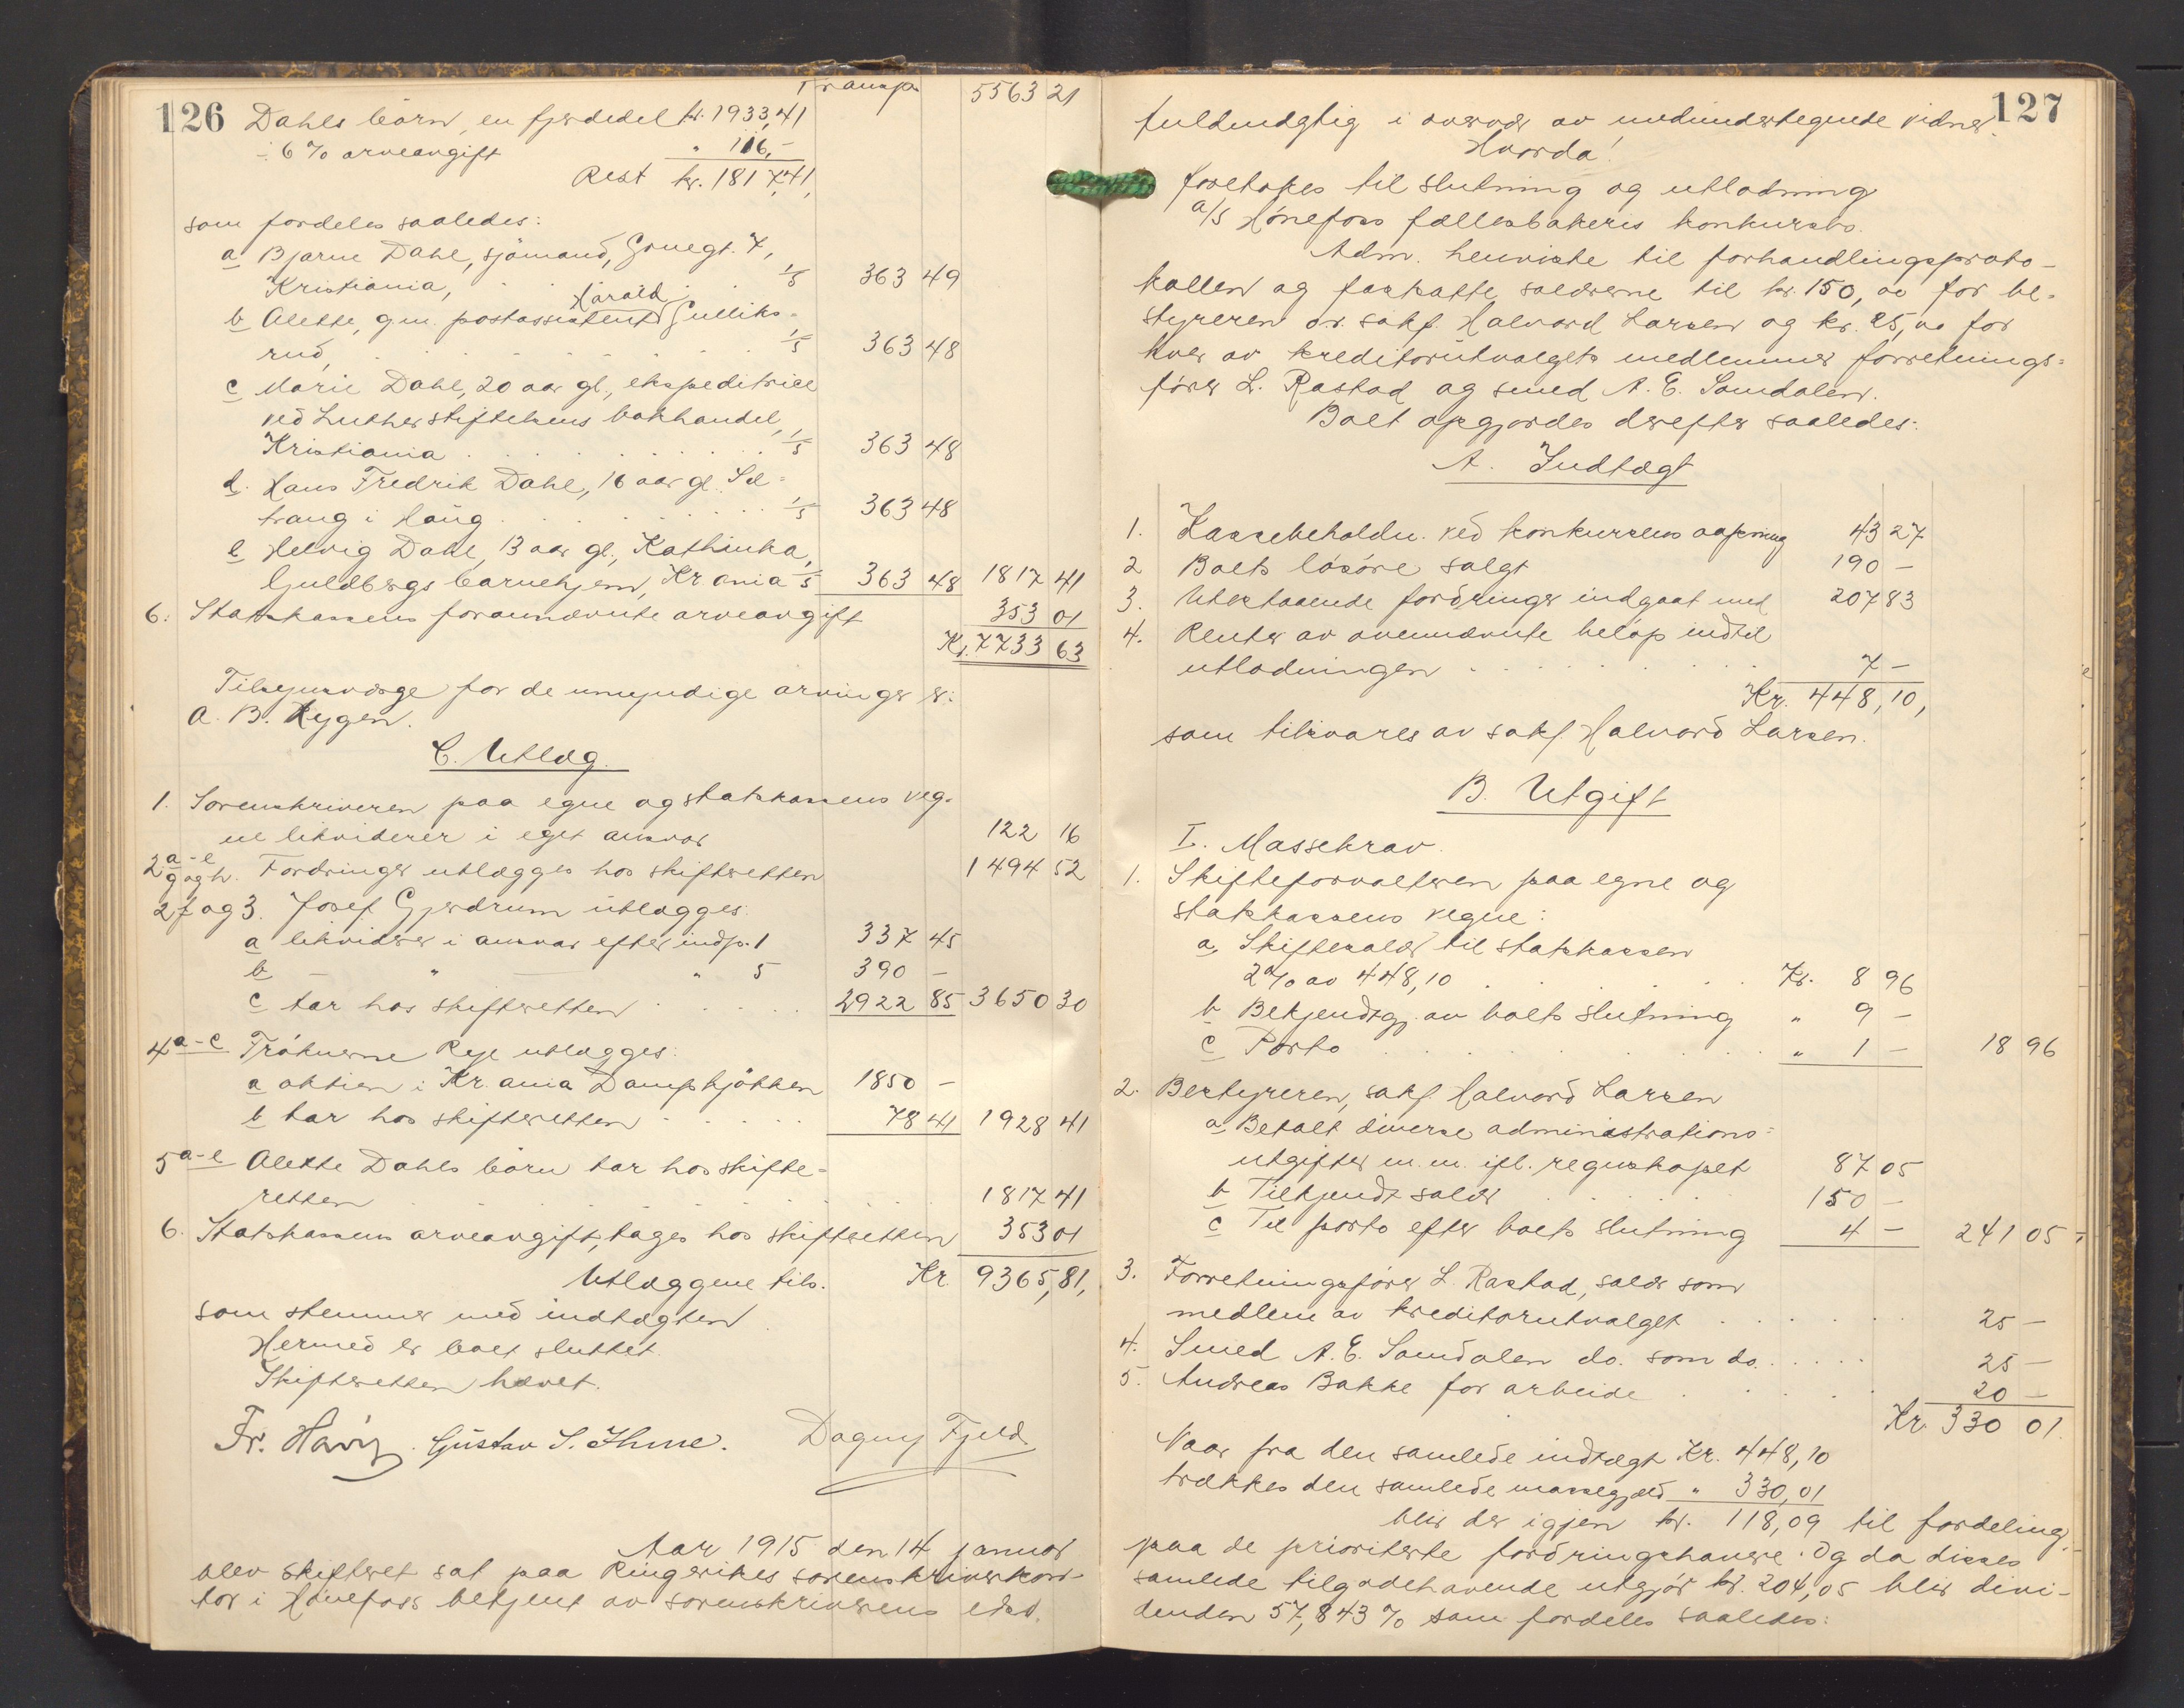 126
Transp. 5563 21
Dahls børn, en fjerdedel kr. 1933,41
÷ 6 % arveavgift " 116,-
Rest kr. 1817,41,
som fordeles saaledes:
a Bjarne Dahl, sjømand, Gruegt. 7,
Kristiania, . . . 1/5 363 49
b Alette, gm. postassistent Harald Gulliks-
rud, . . . 1/5 363 48
c Marie Dahl, 20 aar gl., ekspeditrice
ved Lutherstiftelsens bokhandel,
Kristiania . . . 1/5 363 48
d. Hans Fredrik Dahl, 16 aar gl. Sel-
trang i Haug . . . 1/5 363 48
e Helvig Dahl, 13 aar gl., Kathinka
Guldbergs barnehjem, Kr.ania 1/5 363 48 1817 41
6. Statskassens forannævnte arveavgift 353 01
Kr. 7733 63
Tilsynsverge for de umyndige arvinger er:
A. B. Rygen.
C. Utlæg.
1. Sorenskriveren paa egne og statskassens veg-
ne likviderer i eget ansvar 122 16
2 a-e g og h. Fordringer utlægges hos skifteretten 1494 52
2 f og 3. Josef Gjerdrum utlægges:
a likviderer i ansvar efter indp. 1 337 45
b — " — " 5 390 —
c tar hos skifteretten . . . 2922 85 3650 30
4 a-c Frøknerne Reje utlægges:
a aktien i Kr.ania Dampkjøkken 1850 —
b tar hos skifteretten . . . 78 41 1928 41
5 a-e Alette Dahls børn tar hos skifte-
retten . . . 1817 41
6. Statskassens arveavgift, tages hos skifteretten 353 01
Utlæggene tils. Kr. 9365,81,
som stemmer med indtægten.
Hermed er boet sluttet.
Skifteretten hævet.
Fr. Gustav S. Ihme. Dagny Fjeld
Aar 1915 den 14 januar
blev skifteret sat paa Ringerikes sorenskriverkon-
tor i Hønefoss betjent av sorenskriverens edsv.
127
fuldmægtig i overvær av medundertegnede vidner.
Hvorda!
foretokes til slutning og utlodning
A/S Hønefoss fællesbakeris konkursbo.
Adm. henviste til forhandlingsproto-
kollen og fastsatte salærerne til kr. 150,00 for be-
styreren o.r. sakf. Halvord Larsen og kr. 25,00 for
hver av kreditorutvalgets medlemmer forretnings-
fører L. Rastad og smed A. E. Samdalen.
Boet opgjordes derefter saaledes:
A. Indtægt
1. Kassebeholdn. ved konkursens aapning 43 27
2 Boets løsøre solgt 190 —
3. Utestaaende fordringer indgaat med 207 83
4. Renter av ovennævnte beløp indtil
utlodningen . . . 7 —
Kr. 448,10,
som tilsvares av sakf. Halvord Larsen.
B. Utgift
I. Massekrav.
1. Skifteforvalteren paa egne og
statskassens vegne:
a, Skiftesalær til statskassen
2 % av 448,10 . . . Kr. 8 96
b Bekjendtgj. av boets slutning " 9 —
c Porto . . . " 1 — 18 96
2. Bestyreren, sakf. Halvord Larsen
a, Betalt diverse administrations-
utgifter m. m. ifl. regnskapet 87 05
b Tilkjendt salær . . . 150 —
c Til porto efter boets slutning 4 — 241 05
3. Forretningsfører L. Rastad, salær som
medlem av kreditorutvalget . . . 25 —
4. Smed A. E. Samdalen do. som do. . . . 25 —
5. Andreas Bakke for arbeide . . . 20 —
Kr. 330 01.
Naar fra den samlede indtægt Kr. 448,10
trækkes den samlede massegjæld " 330,01
blir der igjen kr. 118,09 til fordeling
paa de prioriterte fordringshavere. Og da disses
samlede tilgodehavende utgjør kr. 204,05 blir divi-
denden 57,843 % som fordeles saaledes: